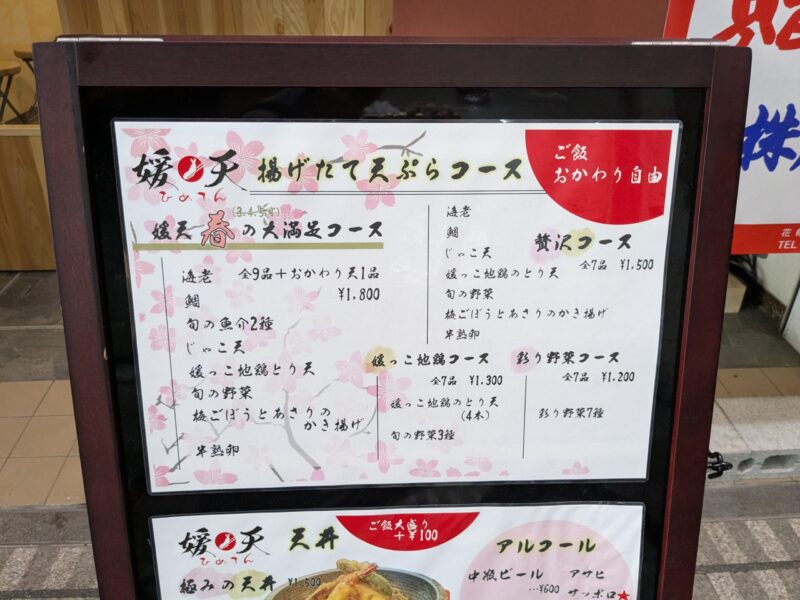 媛天 揚げたて天ぷらコース
ひめてん
ご飯
おかわり自由
(3.4.5月)
媛天 春の大満足コース
海老 全9品+おかわり天1品
¥1,800
鯛
旬の魚介2種
じゃこ天
媛っこ地鶏とり天
旬の野菜
梅ごぼうとあさりの
かき揚げ
半熟卵
海老
鯛
じゃこ天
媛っこ地鶏のとり天
旬の野菜
梅ごぼうとあさりのかき揚げ
半熟卵
贅沢コース
全7品 ¥1,500
媛っこ地鶏コース
全7品 ¥1,300
媛っこ地鶏のとり天
(4本)
旬の野菜3種
彩り野菜コース
全7品 ¥1,200
彩り野菜7種
媛天 天丼
ひめてん
ご飯大盛り
+¥100
極みの天丼 ¥1,500
アルコール
中瓶ビール アサヒ
…¥600 サッポロ★
株
TEL